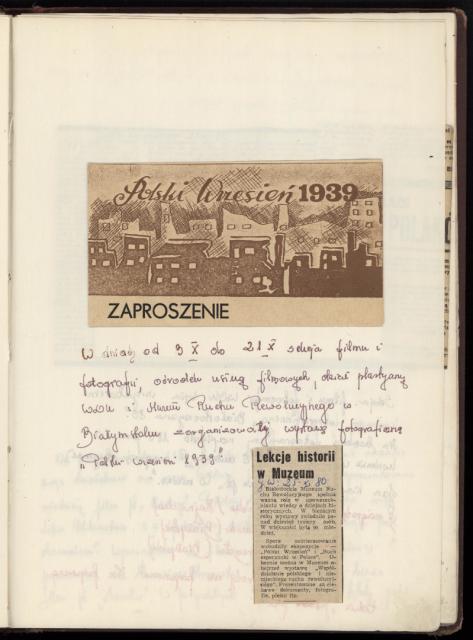 Polski Wrzesień 1939
ZAPROSZENIE
W dniach od 3 X do 21 X sekcja filmu i
fotografii, ośrodek usług filmowych, dział plastyczny
WDK i Muzeum Ruchu Rewolucyjnego w
Białymstoku zorganizowały wystawę fotograficzną
"Polski wrzesień 1939"
Lekcje historii
w Muzeum
80
Białostockie Muzeum Ru-
chu Rewolucyjnego spełnia
ważną rolę w upowszech-
nianiu wiedzy o dziejach hi-
storycznych. W bieżącym
roku wystawy zwiedziło po-
nad dziewięć tysięcy osób.
W większości była to mło-
dzież.
Spore zainteresowanie
wzbudziły ekspozycje —
„Polski Wrzesień" i „Ruch
esperancki w Polsce". O-
becnie można w Muzeum o-
bejrzeć wystawę „Współ-
działanie polskiego i nie-
mieckiego ruchu rewolucyj-
nego". Prezentowane są cie-
kawe dokumenty, fotogra-
fie, pisma itp.